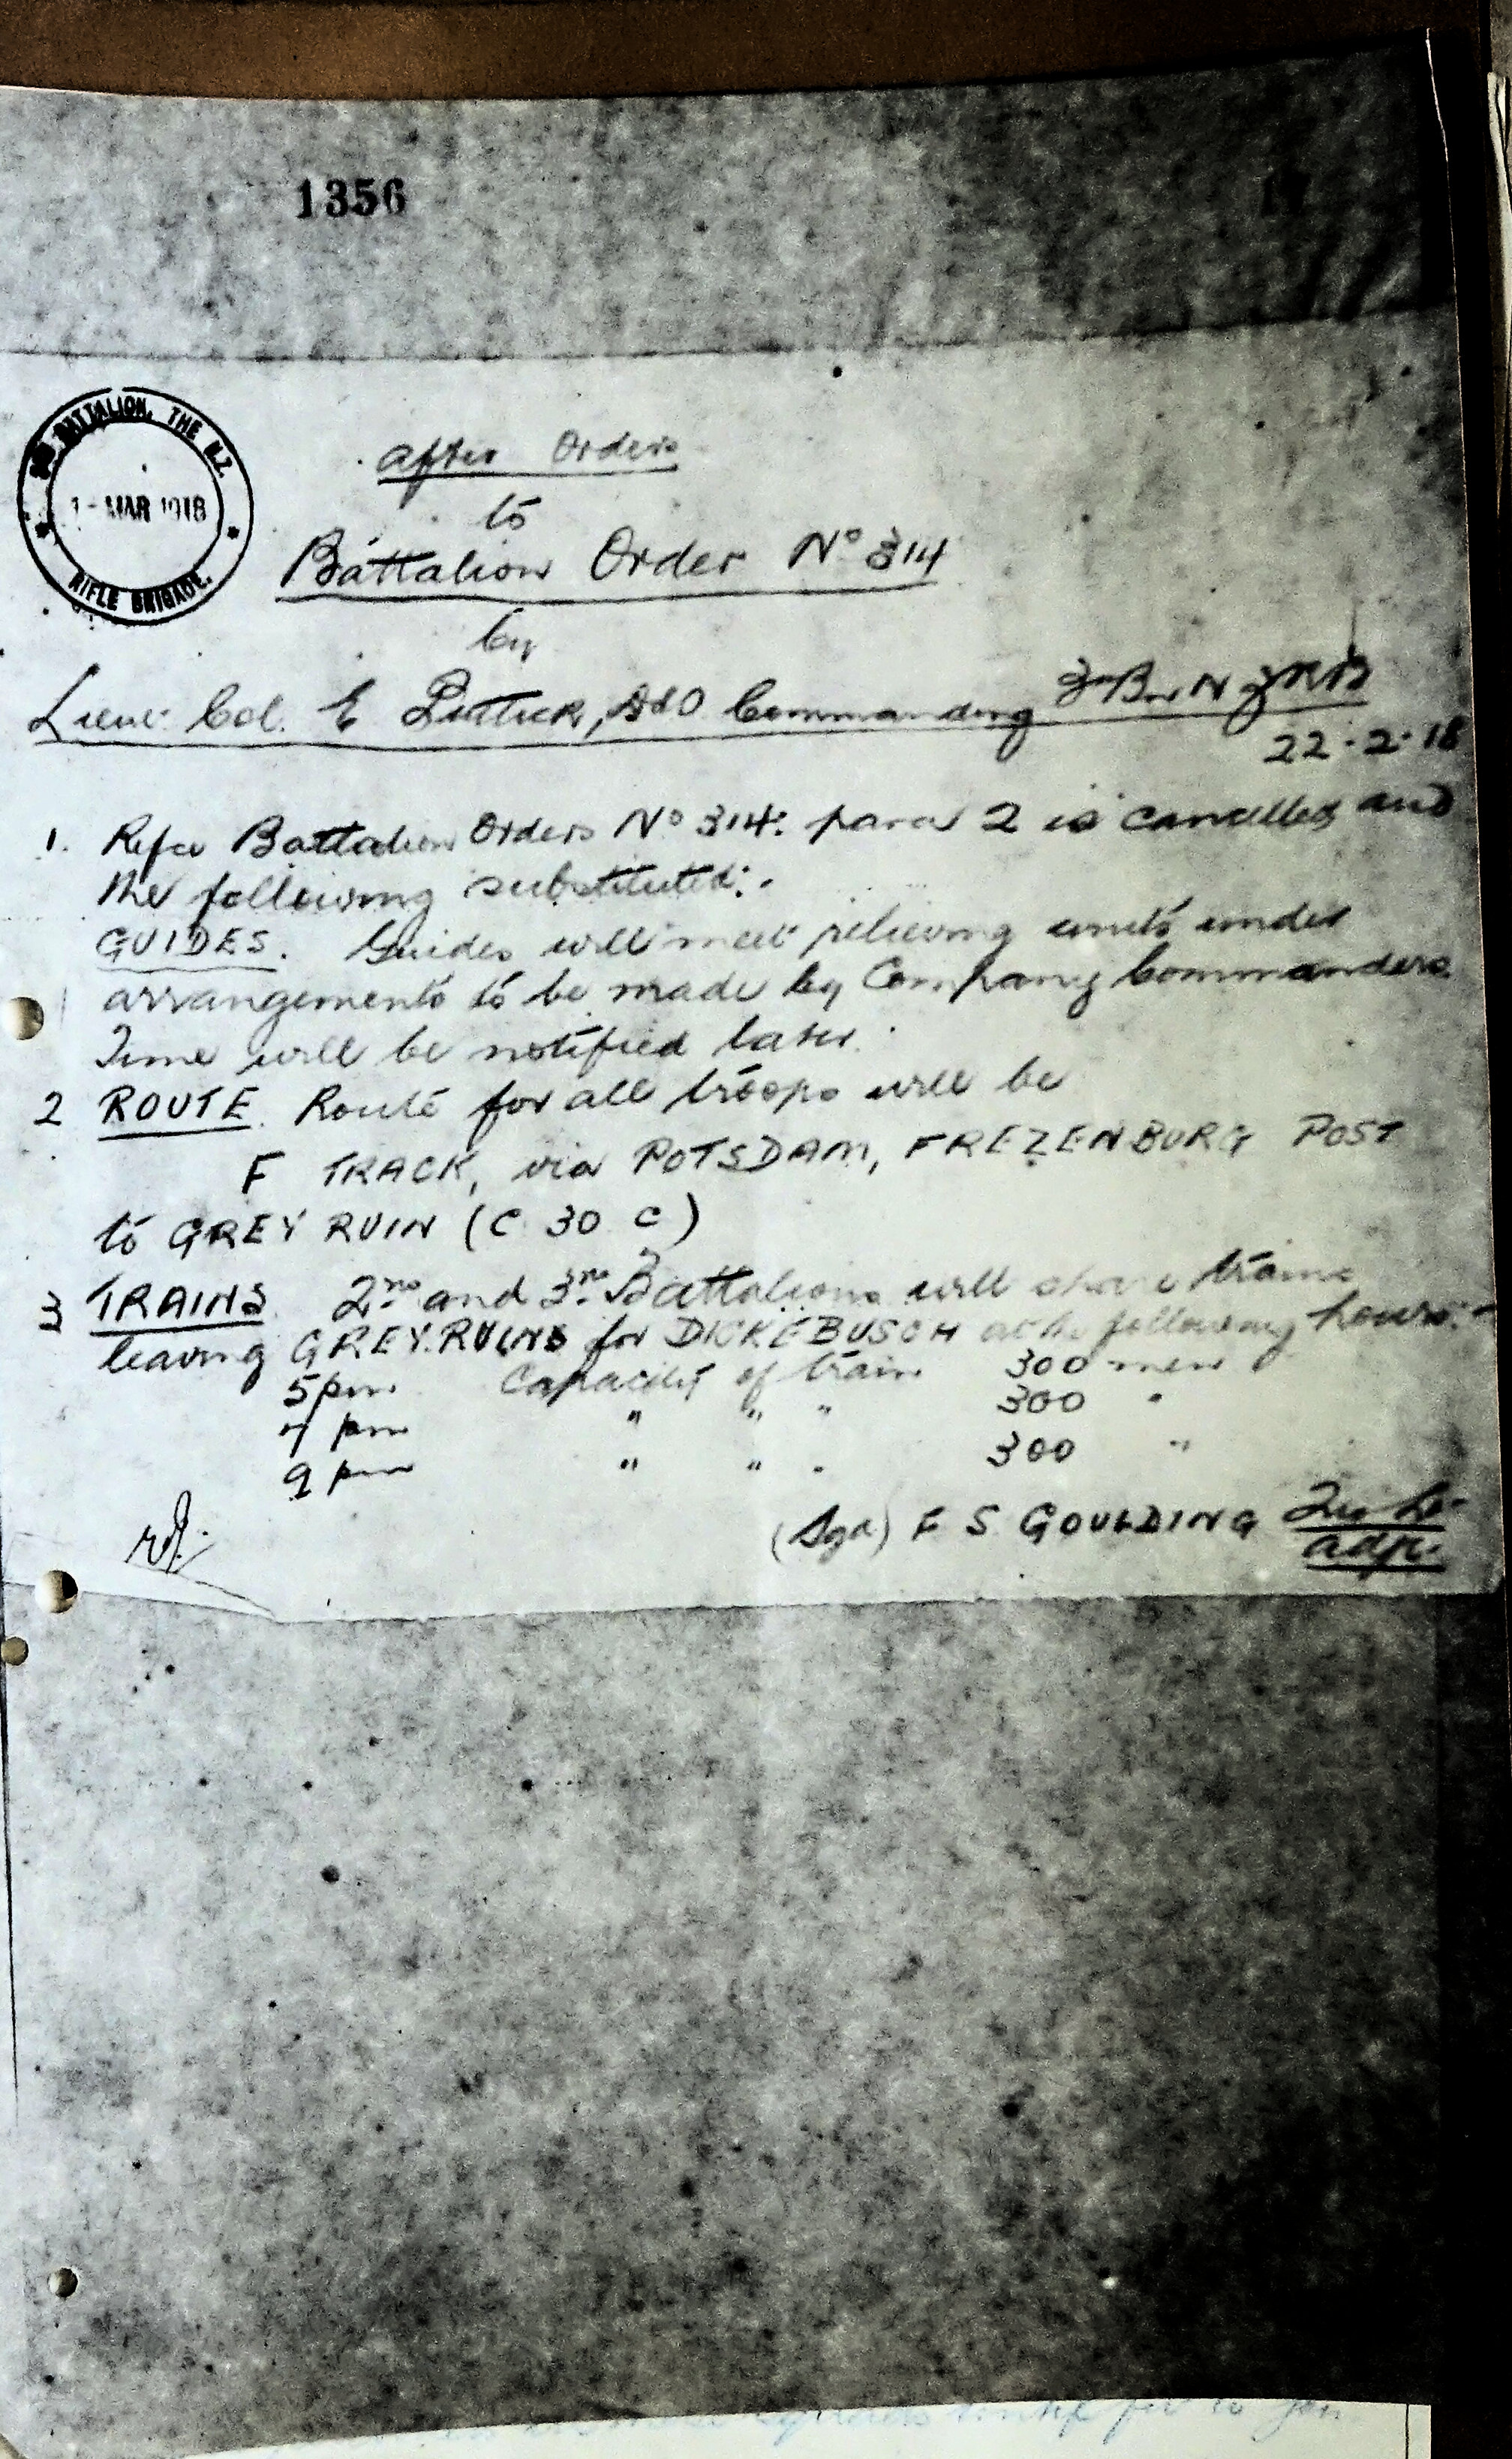 1356
3RD BATTALION, THE N.Z.
1 - MAR 1918
RIFLE BRIGADE.
After Orders
to
Battalion Order No 314
by
Lieut Col. E Puttick, DSO Commanding 3rd Bn N Z R B
22.2.18
1. Refce Battalion Orders No 314: para 2 is cancelled and
the following substituted:-
GUIDES. Guides will meet relieving units under
arrangements to be made by Company Commanders.
Time will be notified later.
2 ROUTE. Route for all troops will be
F TRACK, via POTSDAM, FREZENBURG POST
to GREY RUIN (C 30 C)
3 TRAINS 2nd and 3rd Battalions will share trains
leaving GREY RUINS for DICKEBUSCH at the following hours:-
5 pm Capacity of train 300 men
7 pm " " " 300 "
9 pm " " " 300 "
(Sgd) F S GOULDING 2nd Lt
adjt.